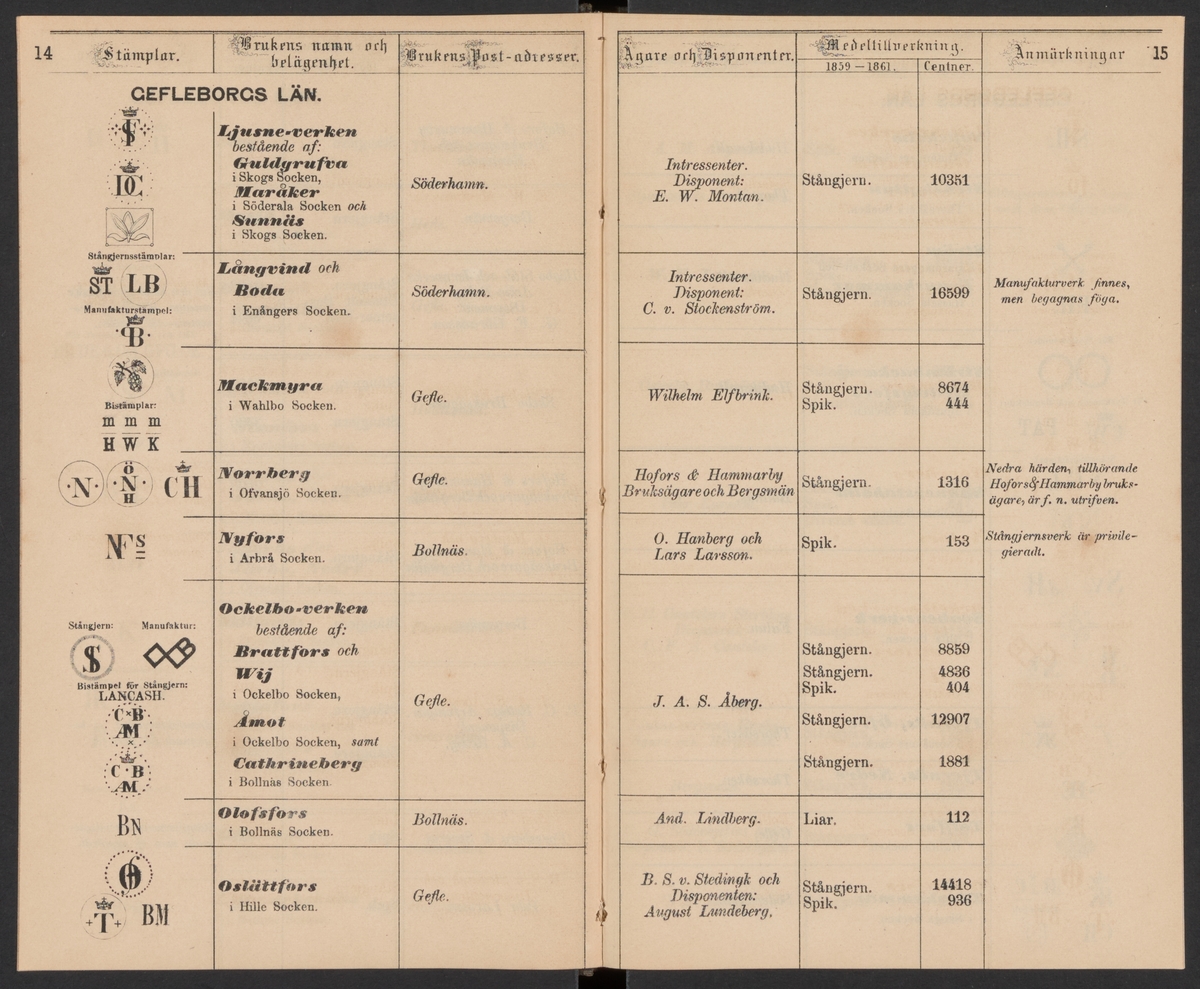 14
Stämplar.
Brukens namn och
belägenhet.
Brukens Post-adresser.
Ägare och Disponenter.
Medeltillverkning.
1859—1861.
Centner.
Anmärkningar
15
GEFLEBORGS LÄN.
Ljusne-verken
bestående af:
Guldgrufva
i Skogs Socken,
Maråker
i Söderala Socken och
Sunnäs
i Skogs Socken.
Söderhamn.
Intressenter.
Disponent:
E. W. Montan.
Stångjern. 10351
Stångjernsstämplar:
ST LB
Manufakturstämpel:
·B·
Långvind och
Boda
i Enångers Socken.
Söderhamn.
Intressenter.
Disponent:
C. v. Stockenström.
Stångjern. 16599
Manufakturverk finnes,
men begagnas föga.
Bistämplar:
m m m
H W K
Mackmyra
i Wahlbo Socken.
Gefle.
Wilhelm Elfbrink.
Stångjern. 8674
Spik. 444
·N·
Ö
·N·
H
CH
Norrberg
i Ofvansjö Socken.
Gefle.
Hofors & Hammarby
Bruksägare och Bergsmän
Stångjern. 1316
Nedra härden, tillhörande
Hofors & Hammarby bruks-
ägare, är f. n. utrifven.
NFs
Nyfors
i Arbrå Socken.
Bollnäs.
O. Hanberg och
Lars Larsson.
Spik. 153
Stångjernsverk är privile-
gieradt.
Stångjern: Manufaktur:
Bistämpel för Stångjern:
LANCASH.
C×B
AM
C·B
AM
Ockelbo-verken
bestående af:
Brattfors och
Wij
i Ockelbo Socken,
Åmot
i Ockelbo Socken, samt
Cathrineberg
i Bollnäs Socken.
Gefle.
J. A. S. Åberg.
Stångjern. 8859
Stångjern. 4836
Spik. 404
Stångjern. 12907
Stångjern. 1881
BN
Olofsfors
i Bollnäs Socken.
Bollnäs.
And. Lindberg.
Liar. 112
+T+ BM
Oslättfors
i Hille Socken.
Gefle.
B. S. v. Stedingk och
Disponenten:
August Lundeberg.
Stångjern. 14418
Spik. 936